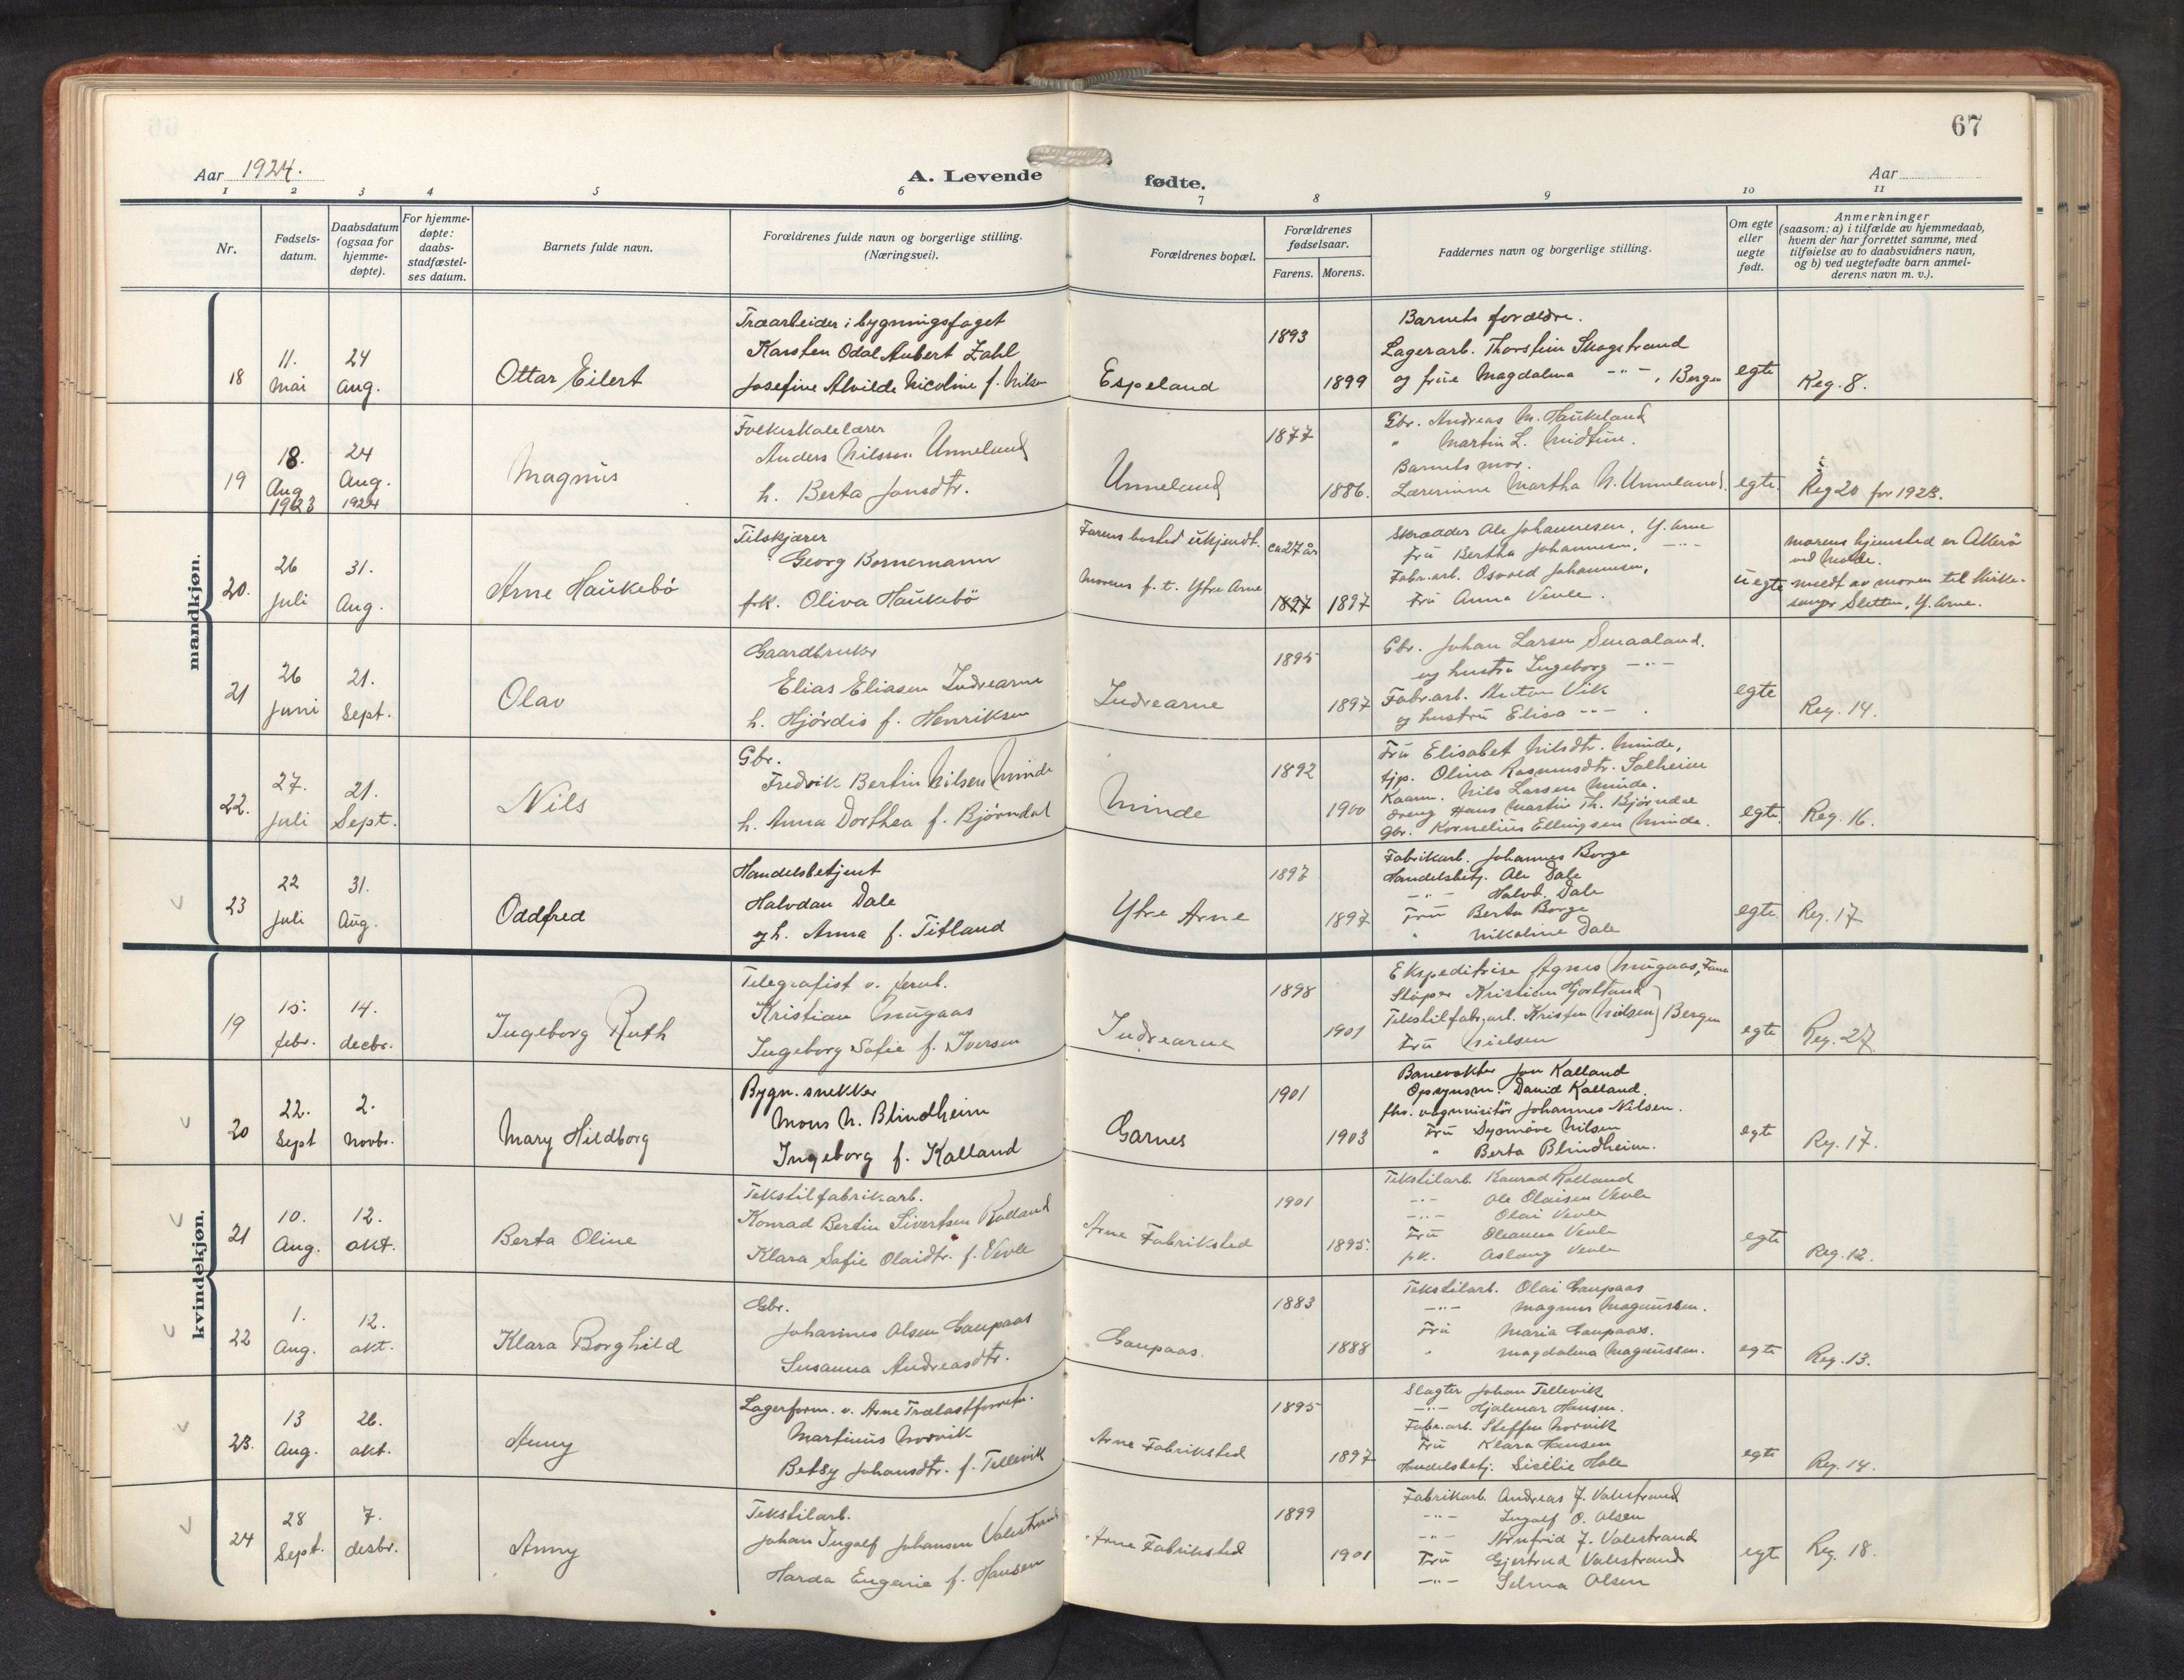 67
Aar 1924.
A. Levende
fødte.
Aar
1 2 3 4 5 6 7 8 9 10 11
Nr.
Fødsels-
datum.
Daabsdatum
(ogsaa for
hjemme-
døpte).
For hjemme-
døpte:
daabs-
stadfæstel-
ses datum.
Barnets fulde navn.
Forældrenes fulde navn og borgerlige stilling.
(Næringsvei).
Forældrenes bopæl.
Forældrenes
fødselsaar.
Farens. Morens.
Faddernes navn og borgerlige stilling.
Om egte
eller
uegte
født.
Anmerkninger
(saasom: a) i tilfælde av hjemmedaab,
hvem der har forrettet samme, med
tilføielse av to daabsvidners navn,
og b) ved uegtefødte barn anmel-
derens navn m. v.).
mandkjøn.
18
11.
Mai
24
Aug.
Ottar Eilert
Træarbeider i bygningsfaget
Karsten Odal Aubert Zahl
Josefine Alvilde Nicoline f. Nilsen
Espeland
1893
1899
Barnets forældre.
Lagerarb. Thorstein Skogstrand
og frue Magdalena -"-, Bergen
egte
Reg. 8.
19
18.
Aug
1923
24
Aug.
1924
Magnus
Folkeskolelærer
Anders Nilssen Unneland
h. Berta Jonsdtr.
Unneland
1877
1886.
Gbr. Andreas M. Haukeland
" Martin L. Midtun.
Barnets mor.
Lærerinne Martha N. Unneland.
egte.
Reg 20 for 1923.
20.
26
Juli
31.
Aug.
Arne Haukebö
Tilskjærer
Georg Bornemann
frk. Oliva Haukebö
Farens bosted ukjendt.
Morens f. t. Ytre Arne
ca 27 år
1897
1897
Skrædder Ole Johannesen, Y. Arne
Fru Bertha Johannesen, -"-
Fabr.arb. Osvald Johannesen,
Fru Anna Vevle.
uegte
Morens hjemsted er Akerö
ved Molde.
meldt av moren til kirke-
sanger Sletten, Y. Arne.
21
26
Juni
21.
Sept.
Olav
Gaardbruker
Elias Eliasen Indrearne
h. Hjördis f. Henriksen
Indrearne
1895
1897
Gbr. Johan Larsen Smaaland.
og hustru Ingeborg -"-
Fabr.arb. Anton Vik
og hustru Elisa -"- .
egte
Reg. 14.
22.
27.
Juli
21.
Sept.
Nils
Gbr.
Fredrik Bertin Nilsen Minde
h. Anna Dorthea f. Bjørndal
Minde
1892
1900
Fru Elisabet Nilsdtr. Minde,
tjp. Olina Rasmusdtr. Solheim
Kaarm. Nils Larsen Minde.
Dreng Hans Martin Th. Bjørndal
Gbr. Kornelius Ellingsen Minde.
egte.
Reg. 16.
23
22
Juli
31.
Aug.
Oddfred
Handelsbetjent
Halvdan Dale
og h. Anna f. Titland
Ytre Arne
1897
1897
Fabrikarb. Johannes Borge
Handelsbetj. Ole Dale
-"- Halvd. Dale
Fru Berta Borge
" Nikoline Dale
egte.
Reg. 17
kvindekjøn.
19
15.
febr.
14.
decbr.
Ingeborg Ruth
Telegrafist v. Jernb.
Kristian Mugaas
Ingeborg Sofie f. Iversen
Indrearne
1898
1901
Ekspeditrise Agnes Mugaas, Fana
Støper Kristian Hjortland
Tekstilfabr.arb. Kristen Nielsen Bergen
Fru Nielsen
egte
Reg. 27.
20
22.
Sept
2.
Novbr.
Mary Hildborg
Bygn. snekker
Mons N. Blindheim
Ingeborg f. Kalland
Garnes
1901
1903
Banevokter Jon Kalland
Opsynsm. David Kalland.
fhv. vognvisitør Johannes Nilsen.
Fru Synnøve Nilsen
" Berta Blindheim.
egte
Reg. 17.
21
10.
Aug.
12.
okt.
Berta Oline
Tekstilfabrikarb.
Konrad Bertin Sivertsen Rolland
Klara Sofie Olaidtr. f. Vevle
Arne Fabriksted
1901
1895.
Tekstilarb. Konrad Rolland
-"- Ole Olaisen Vevle
-"- Olai Vevle
Fru Oleanna Vevle
frk. Aslaug Vevle
egte
Reg. 12.
22
1.
Aug.
12.
okt.
Klara Borghild
Gbr.
Johannes Olsen Gaupaas
Susanna Andreasdtr.
Gaupaas.
1883
1888
Tekstilarb. Olai Gaupaas
-"- Magnus Magnussen.
Fru Maria Gaupaas.
" Magdalena Magnussen.
egte
Reg. 13.
23.
13
Aug.
26.
okt.
Anny
Lagerform. v. Arne Trælastforretn.
Martinus Norvik
Betsy Johansdtr. f. Tellevik
Arne Fabriksted
1895
1897
Slagter Johan Tellevik
-"- Hjalmar Hansen.
Fabr.arb. Steffen Norvik
Fru Klara Hansen
Handelsbetj. Sisilie Hole
egte
Reg. 14.
24
28
Sept.
7.
desbr.
Anny
Tekstilarb.
Johan Ingolf Johansen Valestrand
Harda Eugenie f. Hansen
Arne Fabriksted
1899
1901
Fabrikarb. Andreas J. Valestrand
-"- Ingolf O. Olsen
-"- Arnfrid J. Valestrand
Fru Gjertrud Valestrand
-"- Selma Olsen
egte
Reg. 18.